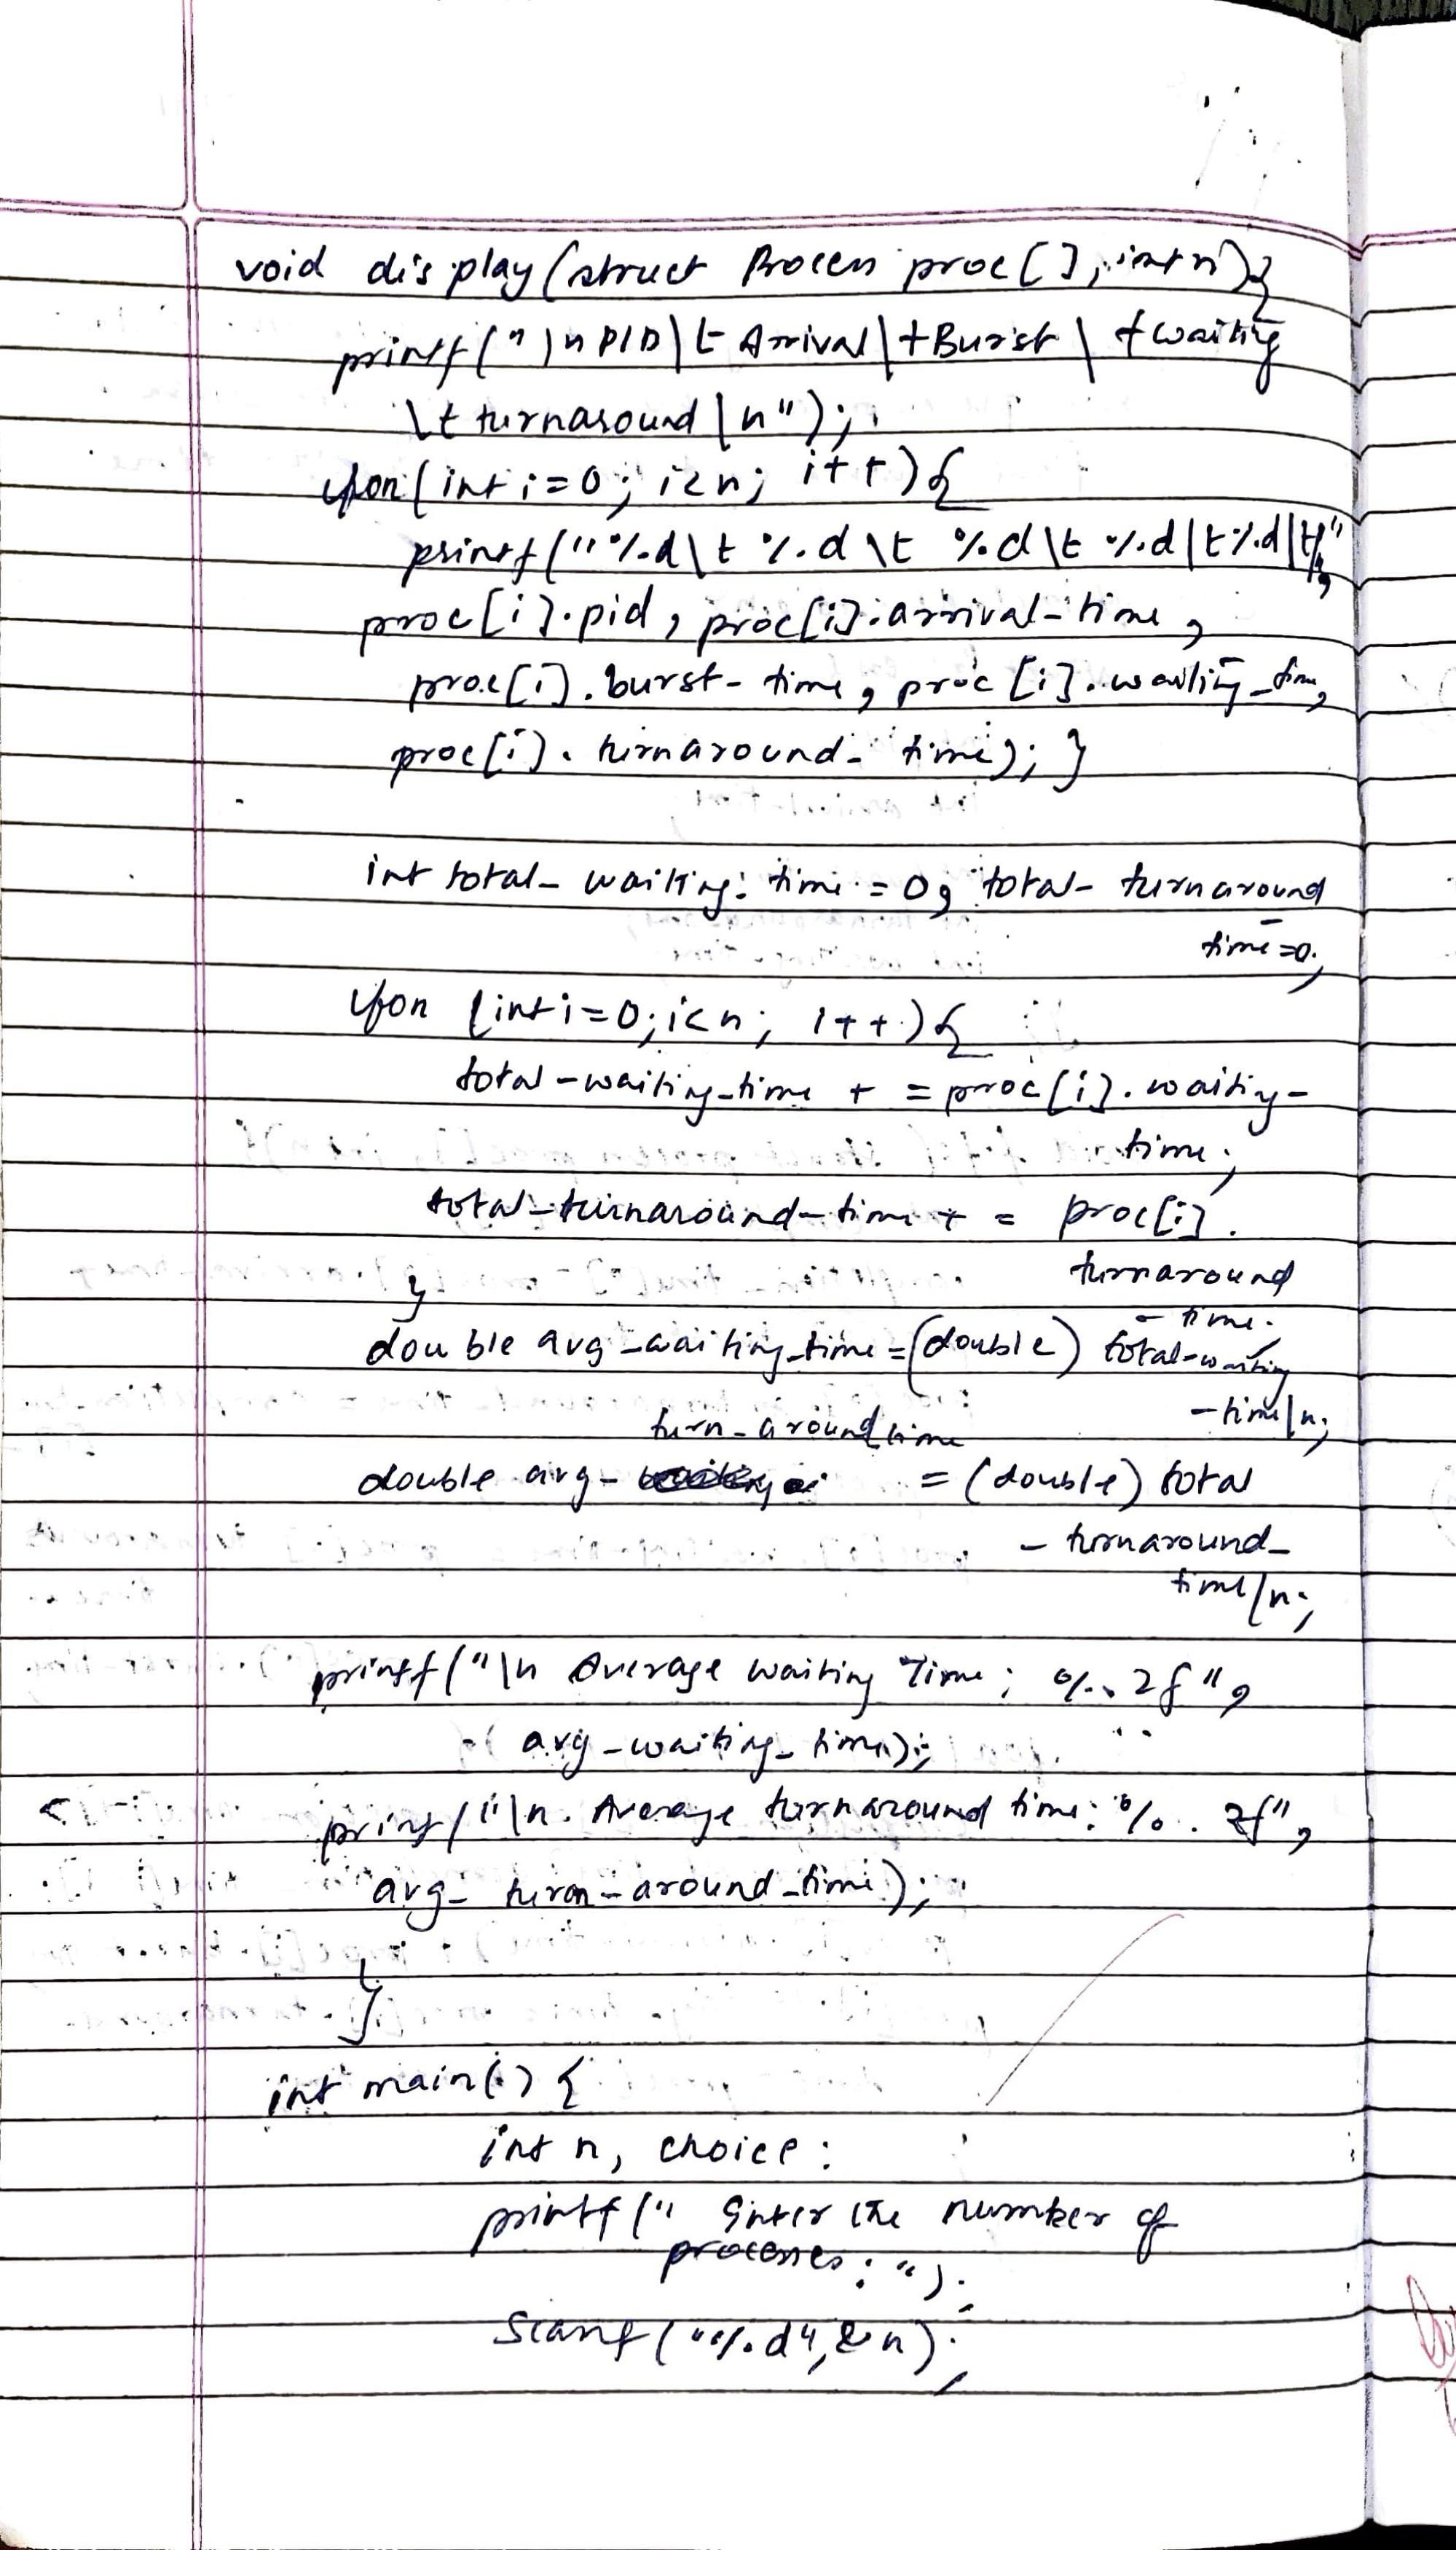 void display(struct Process proc[], int n){
printf("\nPID\t Arrival\tBurst\twaiting
\t turnaround\n");
for(int i=0; i<n; i++){
printf("%d\t %d\t %d\t %d\t%d\t",
proc[i].pid, proc[i].arrival_time,
proc[i].burst_time, proc[i].waiting_time,
proc[i].turnaround_time); }
int total_waiting_time=0, total_turnaround
_
time=0;
for (int i=0; i<n; i++){
total_waiting_time + = proc[i].waiting_
time;
total_turnaround_time + = proc[i].
turnaround
}
_time;
double avg_waiting_time=(double) total_waiting
_time/n;
turn_around time
double avg_ = (double) total
_turnaround_
time/n;
printf("\n Average waiting Time: %.2f",
avg_waiting_time);
printf("\n. Average turnaround time: %.2f",
avg_turn_around_time);
}
int main() {
int n, choice:
printf(" Enter the number of
processes: ");
Scanf("%d",&n);